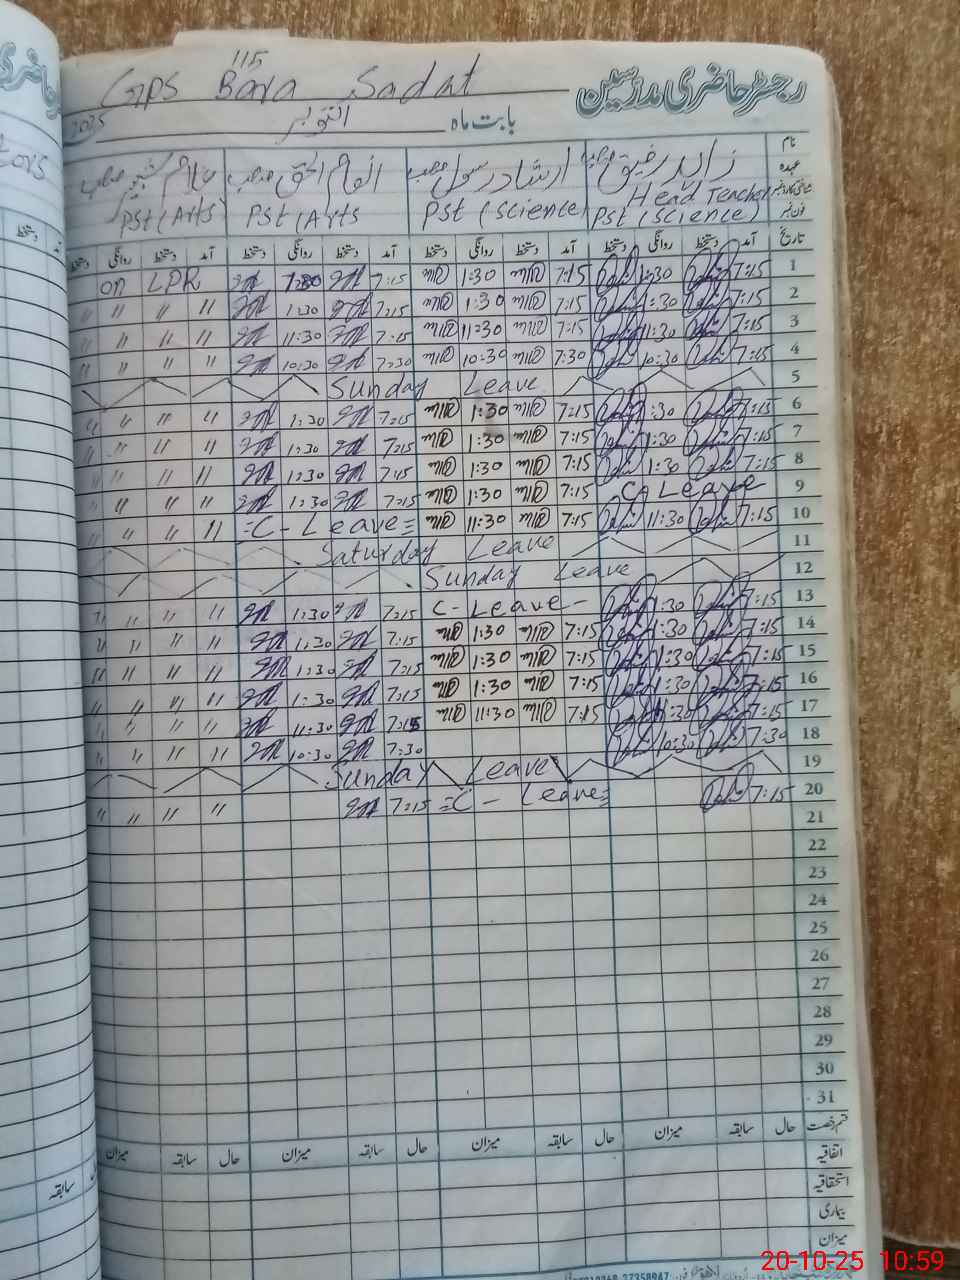 115
GPS Bara Sadat
رجسٹر حاضری مدرسین
بابت ماہ اکتوبر 2025
نام زاہد رفیق صاحب ارشاد رسول صاحب انعام الحق صاحب غلام شبیر صاحب
عہدہ Head Teacher
PST (Science) PST (Science) PST (Arts PST (Arts)
فون نمبر
تاریخ آمد دستخط روانگی دستخط آمد دستخط روانگی دستخط آمد دستخط روانگی دستخط آمد دستخط روانگی دستخط
1 7:15 1:30 7:15 1:30 7:15 1:30 on LPR
2 7:15 1:30 7:15 1:30 7:15 1:30 " " " "
3 7:15 11:30 7:15 11:30 7:15 11:30 " " " "
4 7:15 10:30 7:30 10:30 7:30 10:30 " " " "
5 Sunday Leave
6 7:15 1:30 7:15 1:30 7:15 1:30 " " " "
7 7:15 1:30 7:15 1:30 7:15 1:30 " " " "
8 7:15 1:30 7:15 1:30 7:15 1:30 " " " "
9 C Leave 7:15 1:30 7:15 1:30 " " " "
10 7:15 11:30 7:15 11:30 =C - Leave= " " " "
11 Saturday Leave
12 Sunday Leave
13 7:15 1:30 C - Leave - 7:15 1:30 " " " "
14 7:15 1:30 7:15 1:30 7:15 1:30 " " " "
15 7:15 1:30 7:15 1:30 7:15 1:30 " " " "
16 7:15 1:30 7:15 1:30 7:15 1:30 " " " "
17 7:15 11:30 7:15 11:30 7:15 11:30 " " " "
18 7:30 10:30 7:30 10:30 " " " "
19 Sunday Leave
20 7:15 =C - Leave= 7:15 " " " "
21
22
23
24
25
26
27
28
29
30
31
قسم رخصت حال سابقہ میزان حال سابقہ میزان حال سابقہ میزان
اتفاقیہ
استحقاقیہ
بیماری
میزان
سابقہ
20-10-25 10:59